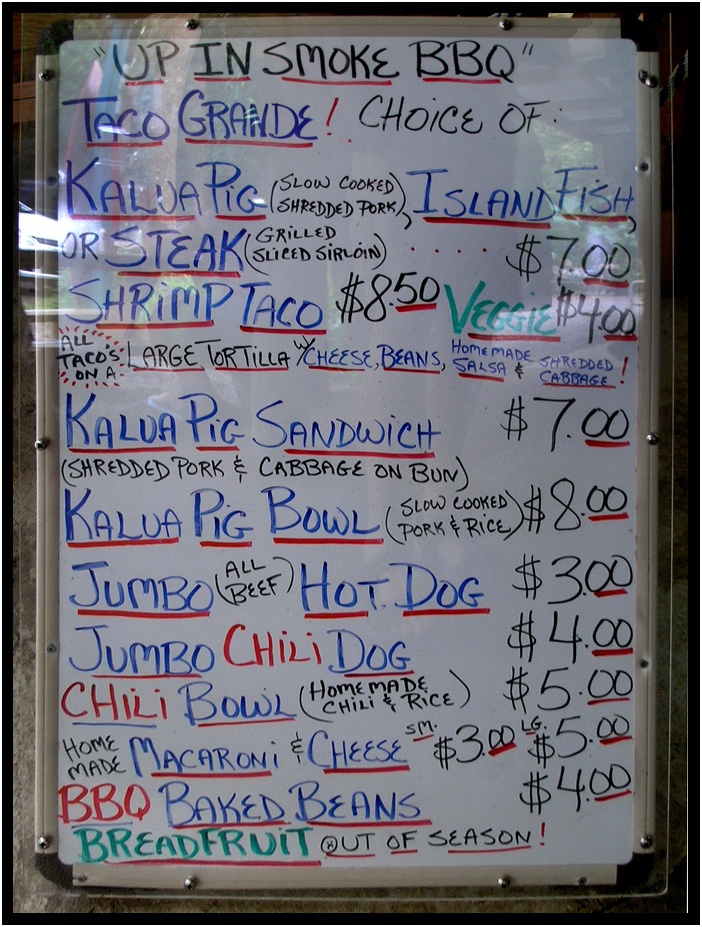 "UP IN SMOKE BBQ"
TACO GRANDE! CHOICE OF:
KALUA PIG (SLOW COOKED SHREDDED PORK), ISLAND FISH,
OR STEAK (GRILLED SLICED SIRLOIN) ..... $7.00
SHRIMP TACO $8.50 VEGGIE $4.00
ALL TACO'S ON A LARGE TORTILLA W/ CHEESE, BEANS, HOMEMADE SALSA & SHREDDED CABBAGE!
KALUA PIG SANDWICH $7.00
(SHREDDED PORK & CABBAGE ON BUN)
KALUA PIG BOWL (SLOW COOKED PORK & RICE) $8.00
JUMBO (ALL BEEF) HOT DOG $3.00
JUMBO CHILI DOG $4.00
CHILI BOWL (HOMEMADE CHILI & RICE) $5.00
HOME MADE MACARONI & CHEESE SM. $3.00 LG. $5.00
BBQ BAKED BEANS $4.00
BREADFRUIT OUT OF SEASON!